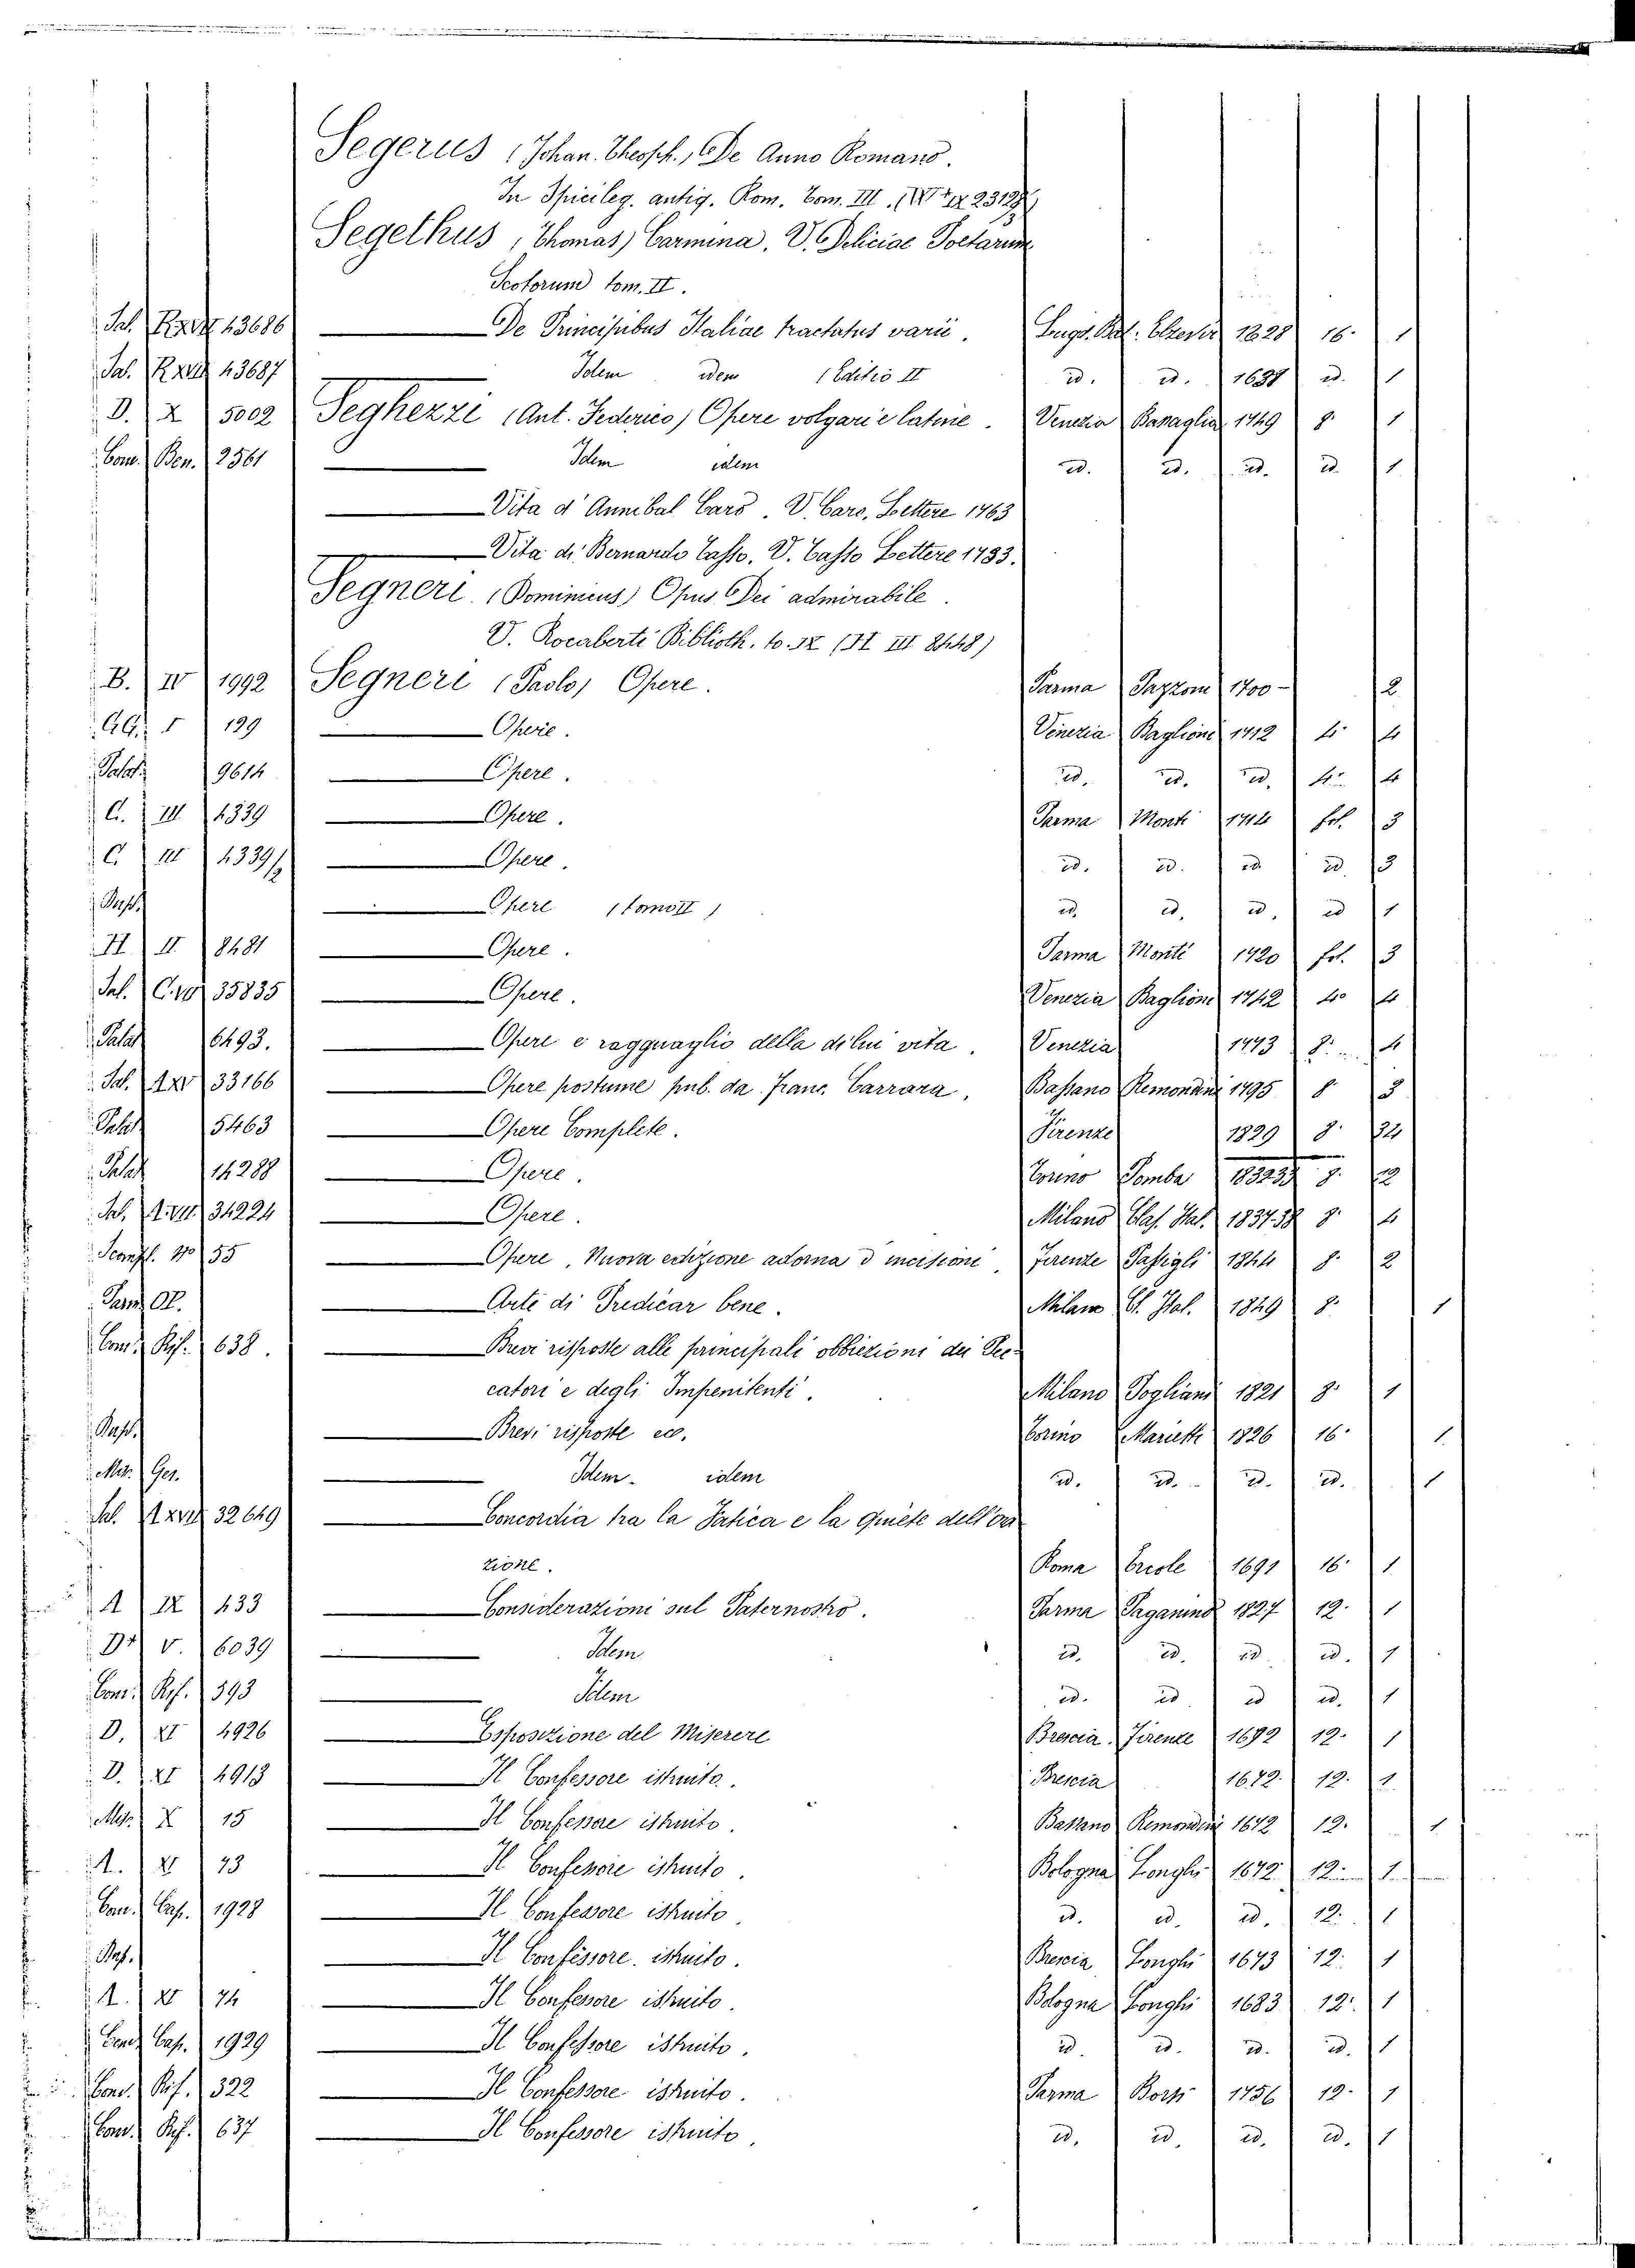 Segerus (Johan. Theoph.) De Anno Romano.
In Spicileg. antiq. Rom. Tom. III.
Segethus (Thomas) Carmina. V. Deliciae Poetarum
Scotorum tom. II.
Sal. 43686 De Principibus Italiae tractatus varii. Lugd. Bat. Elzevir 1628 16. 1
Sal. 43687 Idem idem (Editio II id. id. id. 1
D. X 5002 Seghezzi (Ant. Federico) Opere volgari e latine. Venezia 1749 8. 1
Com. Ben. 2561 Idem idem id. id. id. id. 1
Vita d'Annibal Caro. V. Caro, Lettere 1763
Vita di Bernardo Tasso. V. Tasso Lettere 1733.
Segneri (Dominicus) Opus Dei admirabile.
V. Rocaberti Biblioth. to. (II III 8448)
B. IV 1992 Segneri (Paolo) Opere. Parma Pazzoni 1700 - 2
I 129 Opere. Venezia Baglioni 1712 4. 4
Palat. 9614 Opere. id. id. id. 4. 4
C. III 4339 Opere. Parma Monti 1714 fol. 3
C III 4339/2 Opere. id. id. id. id. 3
Opere (tomo II) id. id. id. id 1
II II 8481 Opere. Parma Monti 1720 fol. 3
Sal. 35835 Opere. Venezia Baglioni 1742 4o 4
Palat. 6493. Opere e ragguaglio della di lui vita. Venezia 1773 8. 4
Sal. 33166 Opere postume pub. da Franc. Carrara. Bassano Remondini 1795 8 3
Palat. 5463 Opere Complete. Firenze 1829 8.
Palat. 14288 Opere. Torino Pomba 8. 12
Sal. 34224 Opere. Milano Clas. Ital. 1837-38 8. 4
55 Opere, Nuova edizione adorna d'incisioni. Firenze Passigli 1844 8. 2
Arte di Predicar bene. Milano Cl. Ital. 1829 8. 1
Com. Rif. 638. Brevi risposte alle principali obbiezioni dei Pec-
catori e degli Impenitenti. Milano Pogliani 1821 8. 1
Brevi risposte ec. Torino Marietti 1826 16. 1
Ges. Idem. idem id. id. id. id. 1
Sal. 32649 Concordia tra la Fatica e la Quiete dell'ora-
zione. Roma Ercole 1691 16. 1
A IX 433 Considerazioni sul Paternostro. Parma Paganino 1827 12. 1
V. 6039 Idem id. id. id. id. 1
Com. Rif. 393 Idem id. id id id. 1
D. 4926 Esposizione del Miserere Brescia. Firenze 1692 12. 1
D. 4913 Il Confessore istruito. Brescia 1672. 12. 1.
X 15 Il Confessore istruito. Bassano Remondini 1672 12. 1
A. 73 Il Confessore istruito. Bologna Longhi 1672. 12. 1.
Com. Cap. 1928 Il Confessore istruito. id. id. id. 12. 1
Il Confessore istruito. Brescia Longhi 1673 12. 1
A. 74 Il Confessore istruito. Bologna Longhi 1683 12. 1
Com. Cap. 1929 Il Confessore istruito. id. id. id. id. 1
Com. Rif. 322 Il Confessore istruito. Parma 1756 12. 1
Com. Rif. 637 Il Confessore istruito. id. id. id. id. 1